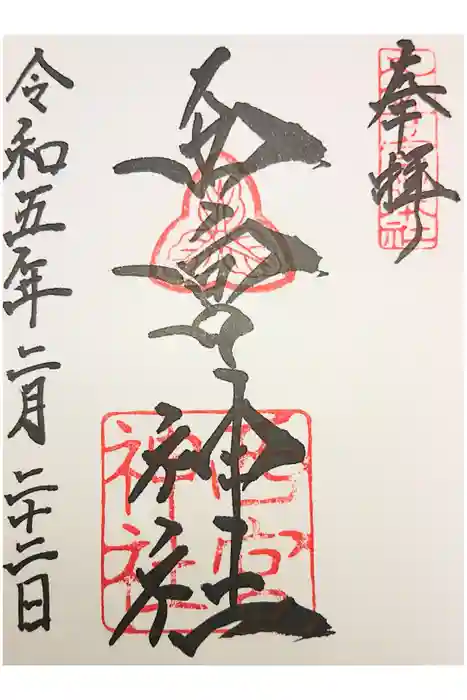 奉拝
西宮神社
西宮
神社
令和五年二月二十二日